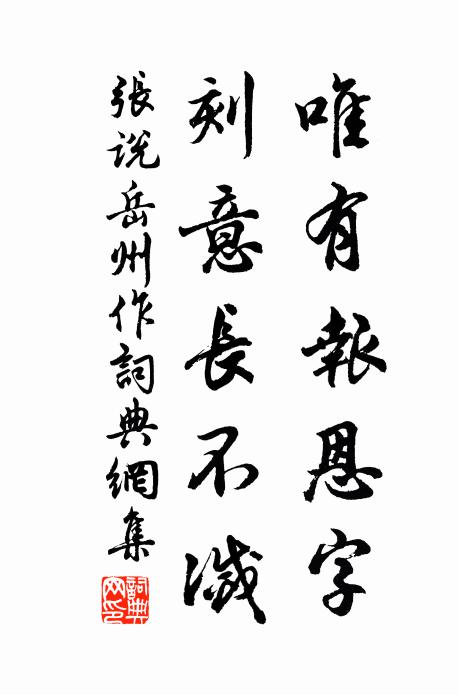 唯有報恩字
刻意長不滅
張說岳州作詞典網集
詞典網印